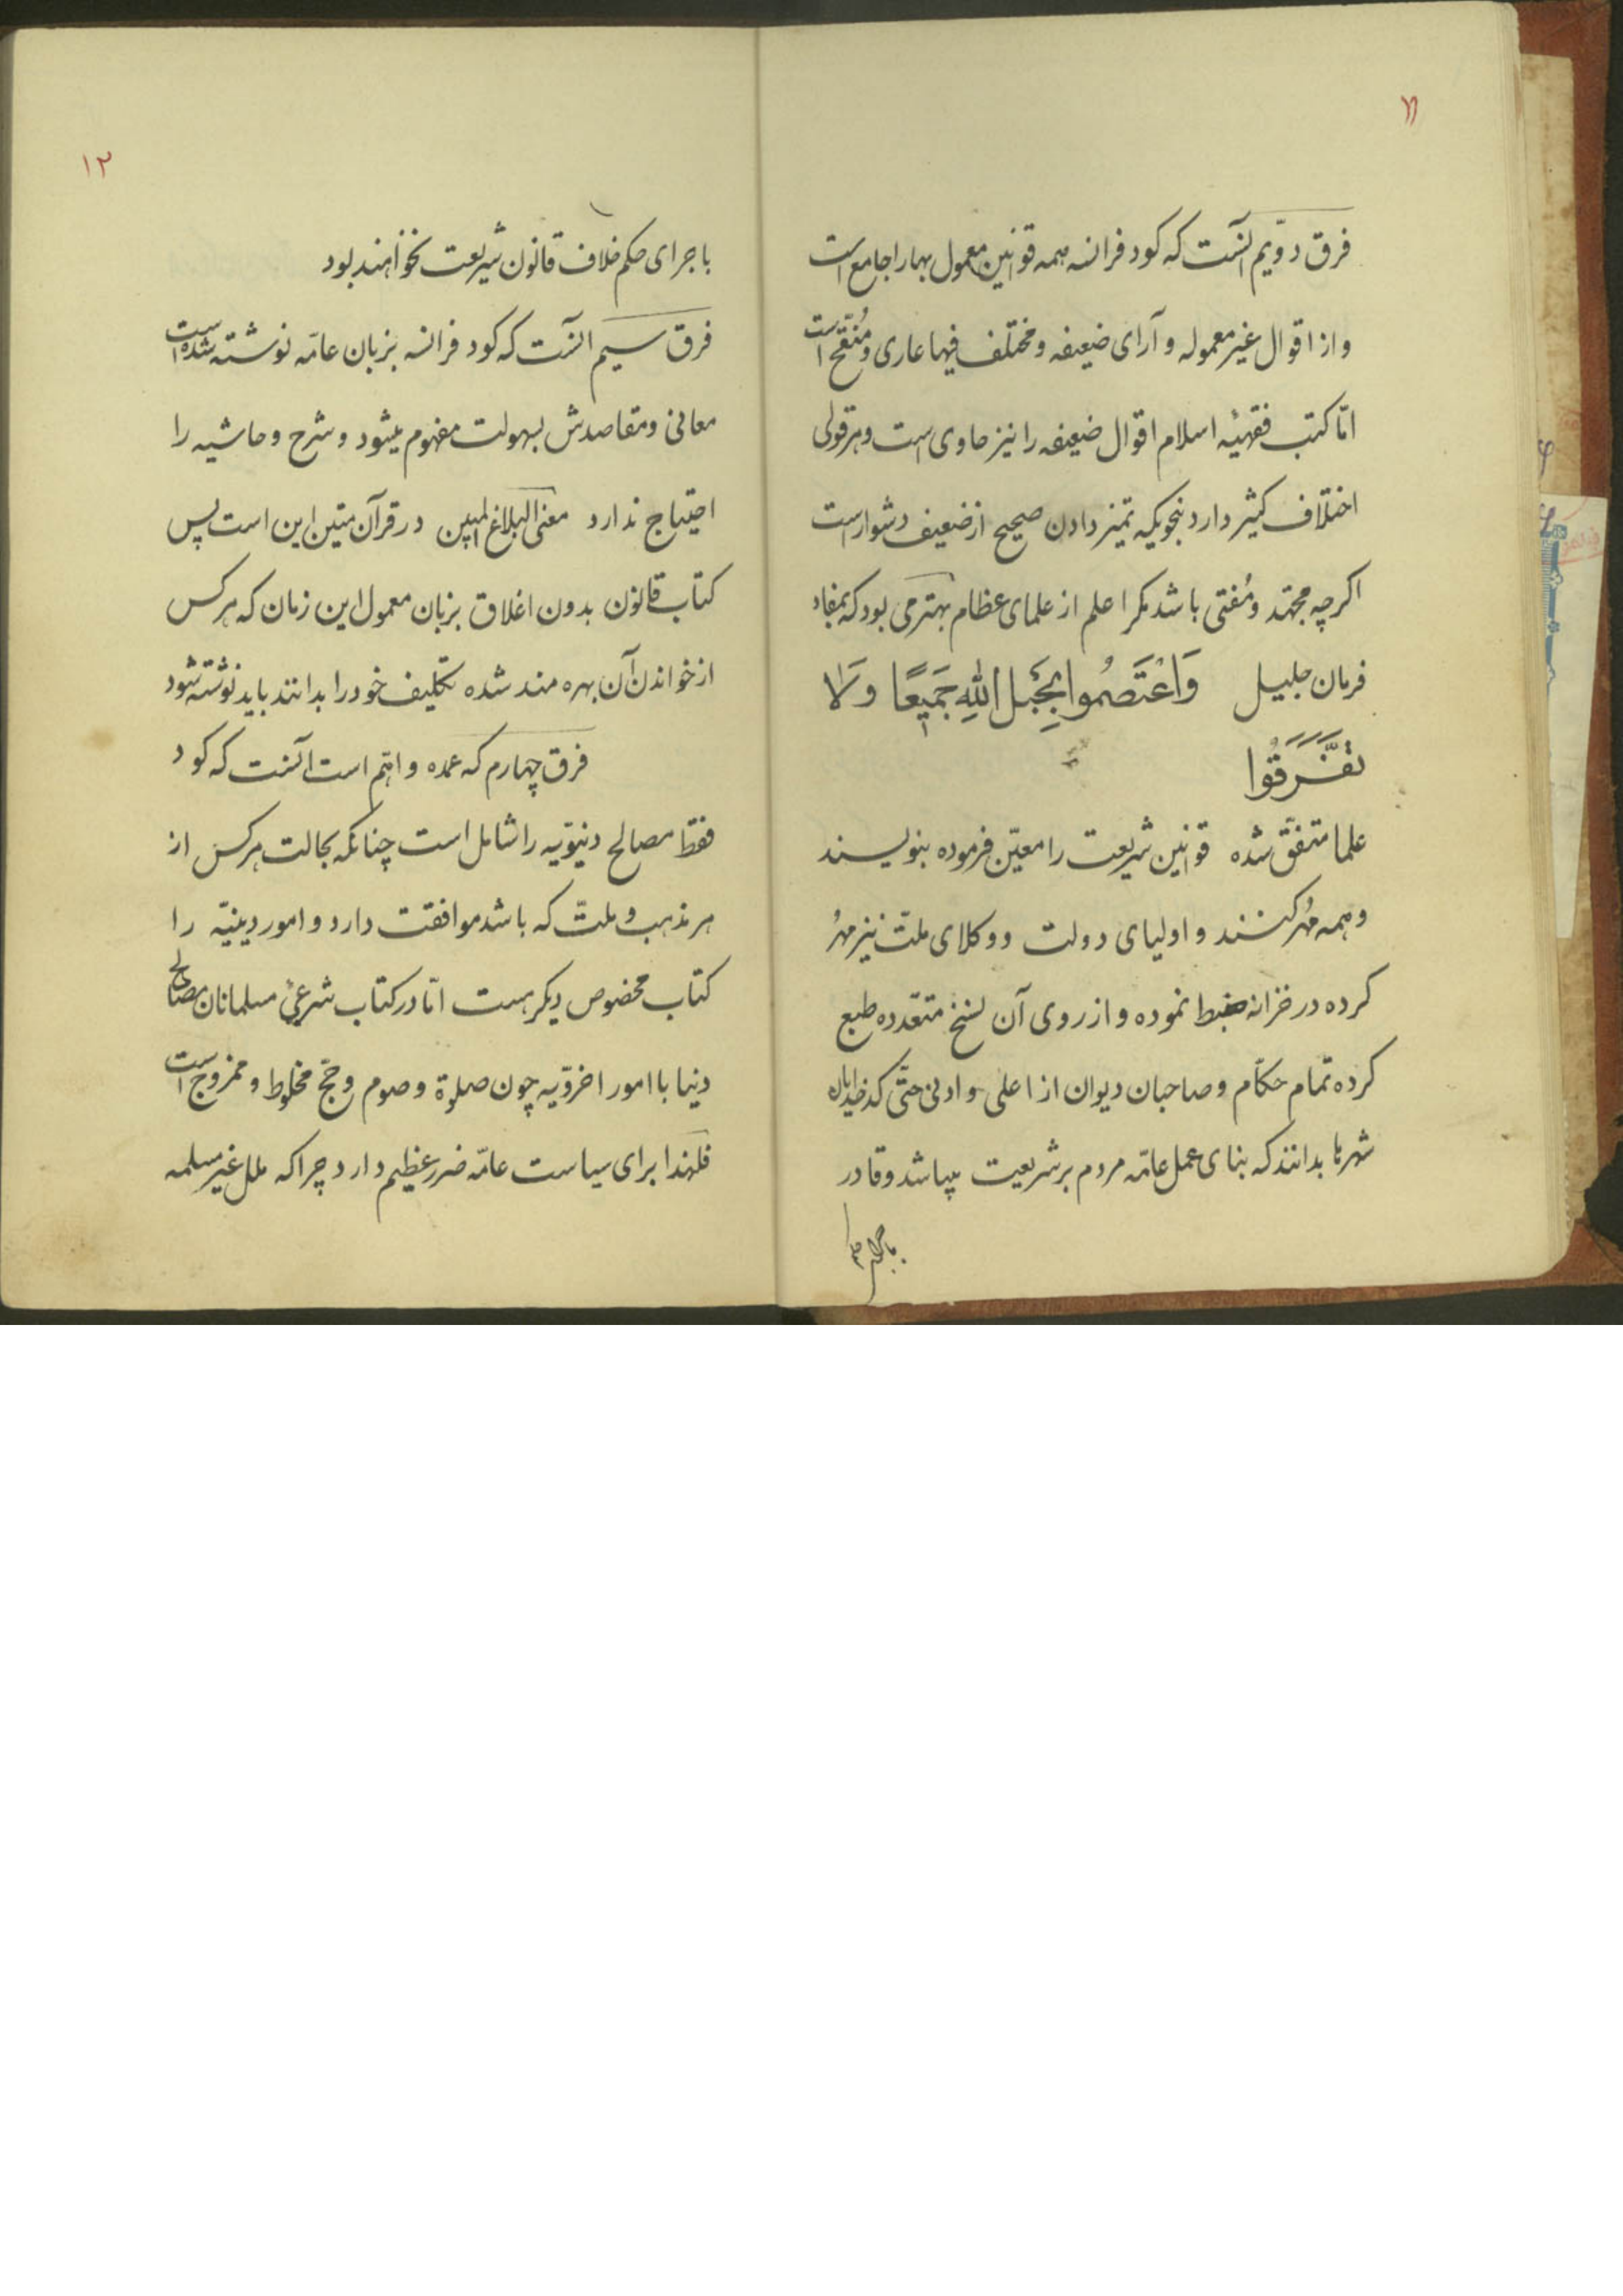 ۱۱
فرق دویّم آنست که کود فرانسه همه قوانین معمول بها را جامع است
و از اقوال غیر معموله و آرای ضعیفه و مختلف فیها عاری و مُنقّح است
امّا کتب فقهیّه اسلام اقوال ضعیفه را نیز حاوی است و هر قولی
اختلاف کثیر دارد بنحویکه تمیز دادن صحیح از ضعیف دشوار است
اکرچه مجتهد و مُفتی باشد مکر اعلم از علمای عظام بهتر می بود که بمفاد
فرمان جلیل وَاعْتَصِمُوا بِحَبْلِ اللّٰهِ جَمیعًا وَلا
تَفَرَّقُوا
علما متفق شده قوانین شریعت را معیّن فرموده بنویسند
و همه مُهر کنند و اولیای دولت و وکلای ملّت نیز مهُر
کرده در خزانه ضبط نموده و از روی آن نسخ متعّدده طبع
کرده تمام حکاّم و صاحبان دیوان از اعلی و ادنی حتّی کدخدایان
شهرها بدانند که بنای عمل عامّه مردم بر شریعت میباشد و قادر
باجرای حکم
۱۲
باجرای حکم خلاف قانون شریعت نخواهند بود
فرق سیم آنست که کود فرانسه بزبان عامّه نوشته شده است
معانی و مقاصدش بسهولت مفهوم میشود و شرح و حاشیه را
احتیاج ندارد معنی البلاغ المبین در قرآن متین این است پس
کتاب قانون بدون اغلاق بزبان معمول این زمان که هرکس
از خواندن آن بهره مند شده تکلیف خود را بدانند باید نوشته شود
فرق چهارم که عمده و اهّم است آنست که کود
فقط مصالح دنیوّیه را شامل است چنانکه بحالت هرکس از
هر مذهب و ملتّ که باشد موافقت دارد و امور دینیّه را
کتاب مخصوص دیکر هست امّا در کتاب شرعیٔ مسلمانان مصالح
دنیا با امور اخروّیه چون صلوة و صوم و حجّ مخلوط و ممزوج است
فلهذا برای سیاست عامّه ضرر عظیم دارد چرا که ملل غیر مسلمه